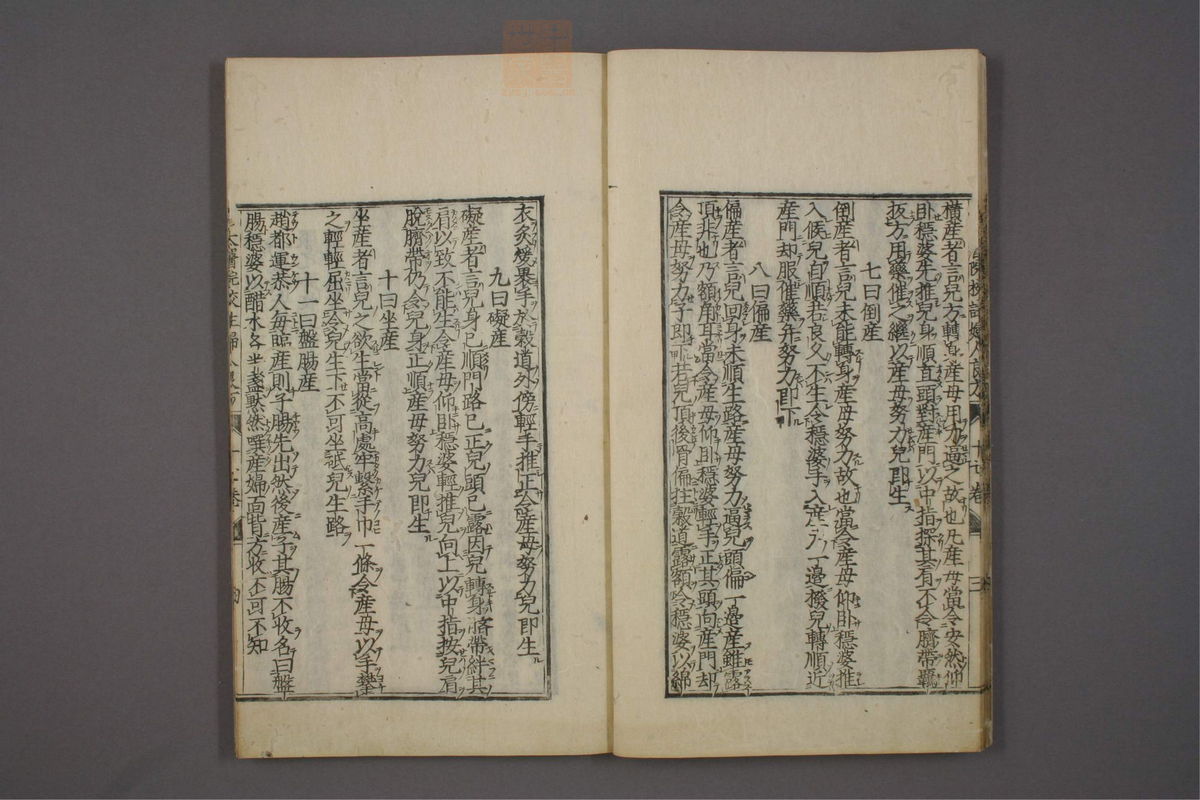 橫産者言兒方轉身産母用力逼之故也凡産母當令安然仰
臥穩婆先推兒身順直頭對産門以中指探其有不令臍帶羈
扳方用藥催之繼以産母努力兒即生
七曰倒産
倒産者言兒未能轉身産母努力故也當令産母仰臥穩婆推
入候兒自順若良久不生令穩婆手入産戶一邊撥兒轉順近
産門却服催藥并努力即下
八曰偏産
偏産者言兒回身未順生路産母努力逼兒頭偏一邊産雖露
頂非也乃額角耳當令産母仰臥穩婆輕手正其頭向産門却
令産母努力子即下若兒頂後骨偏拄穀道露額令穩婆以綿
衣炙煖裹手於穀道外傍輕手推正令産母努力兒即生
九曰礙産
礙産者言兒身已順門路已正兒頭已露因兒轉身臍帶絆其
肩以致不能生令産母仰臥穩婆輕推兒向上以中指按兒肩
脫臍帶仍令兒身正順産母努力兒即生
十曰坐産
坐産者言兒之欲生當從高處牢繫手巾一條令産母以手攀
之輕輕屈坐令兒生下不可坐砥兒生路
十一曰盤腸産
趙都運恭人每臨産則子腸先出然後産子其腸不收名曰盤
腸穩婆以醋水各半盞默然噀産婦面背方收不可不知